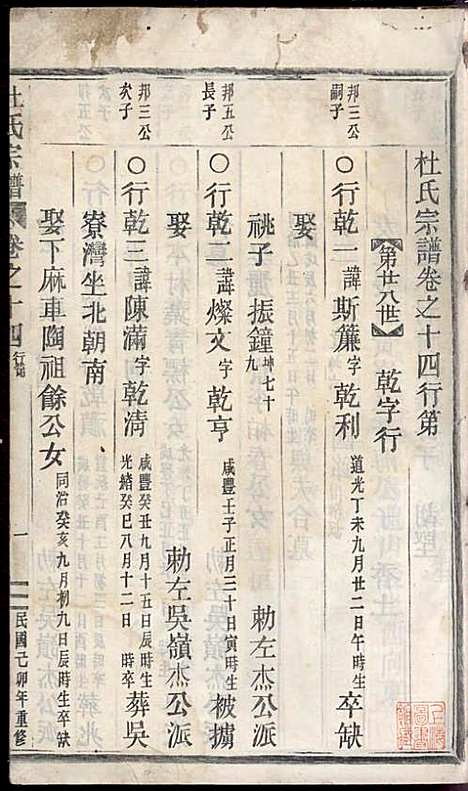 杜氏宗譜卷之十四行第
【第廿八世】 乾字行
邦三公嗣子
○行乾一諱斯簾字乾利 道光丁未九月廿二日午時生 卒缺
娶
祧子振鐘坤七十九 勅左杰公派
邦五公長子
○行乾二諱燦文字乾亨 咸豐壬子正月三十日寅時生 被擄
娶 勅左吳嶺杰公派
邦三公次子
○行乾三諱陳滿字乾淸 咸豐癸丑九月十五日辰時生 光緒癸巳八月十二日 時卒 葬吳
寮灣坐北朝南
娶下麻車陶祖餘公女 同治癸亥九月初九日辰時生 卒缺
杜氏宗譜 卷之十四 行第 一 民國己卯年重修